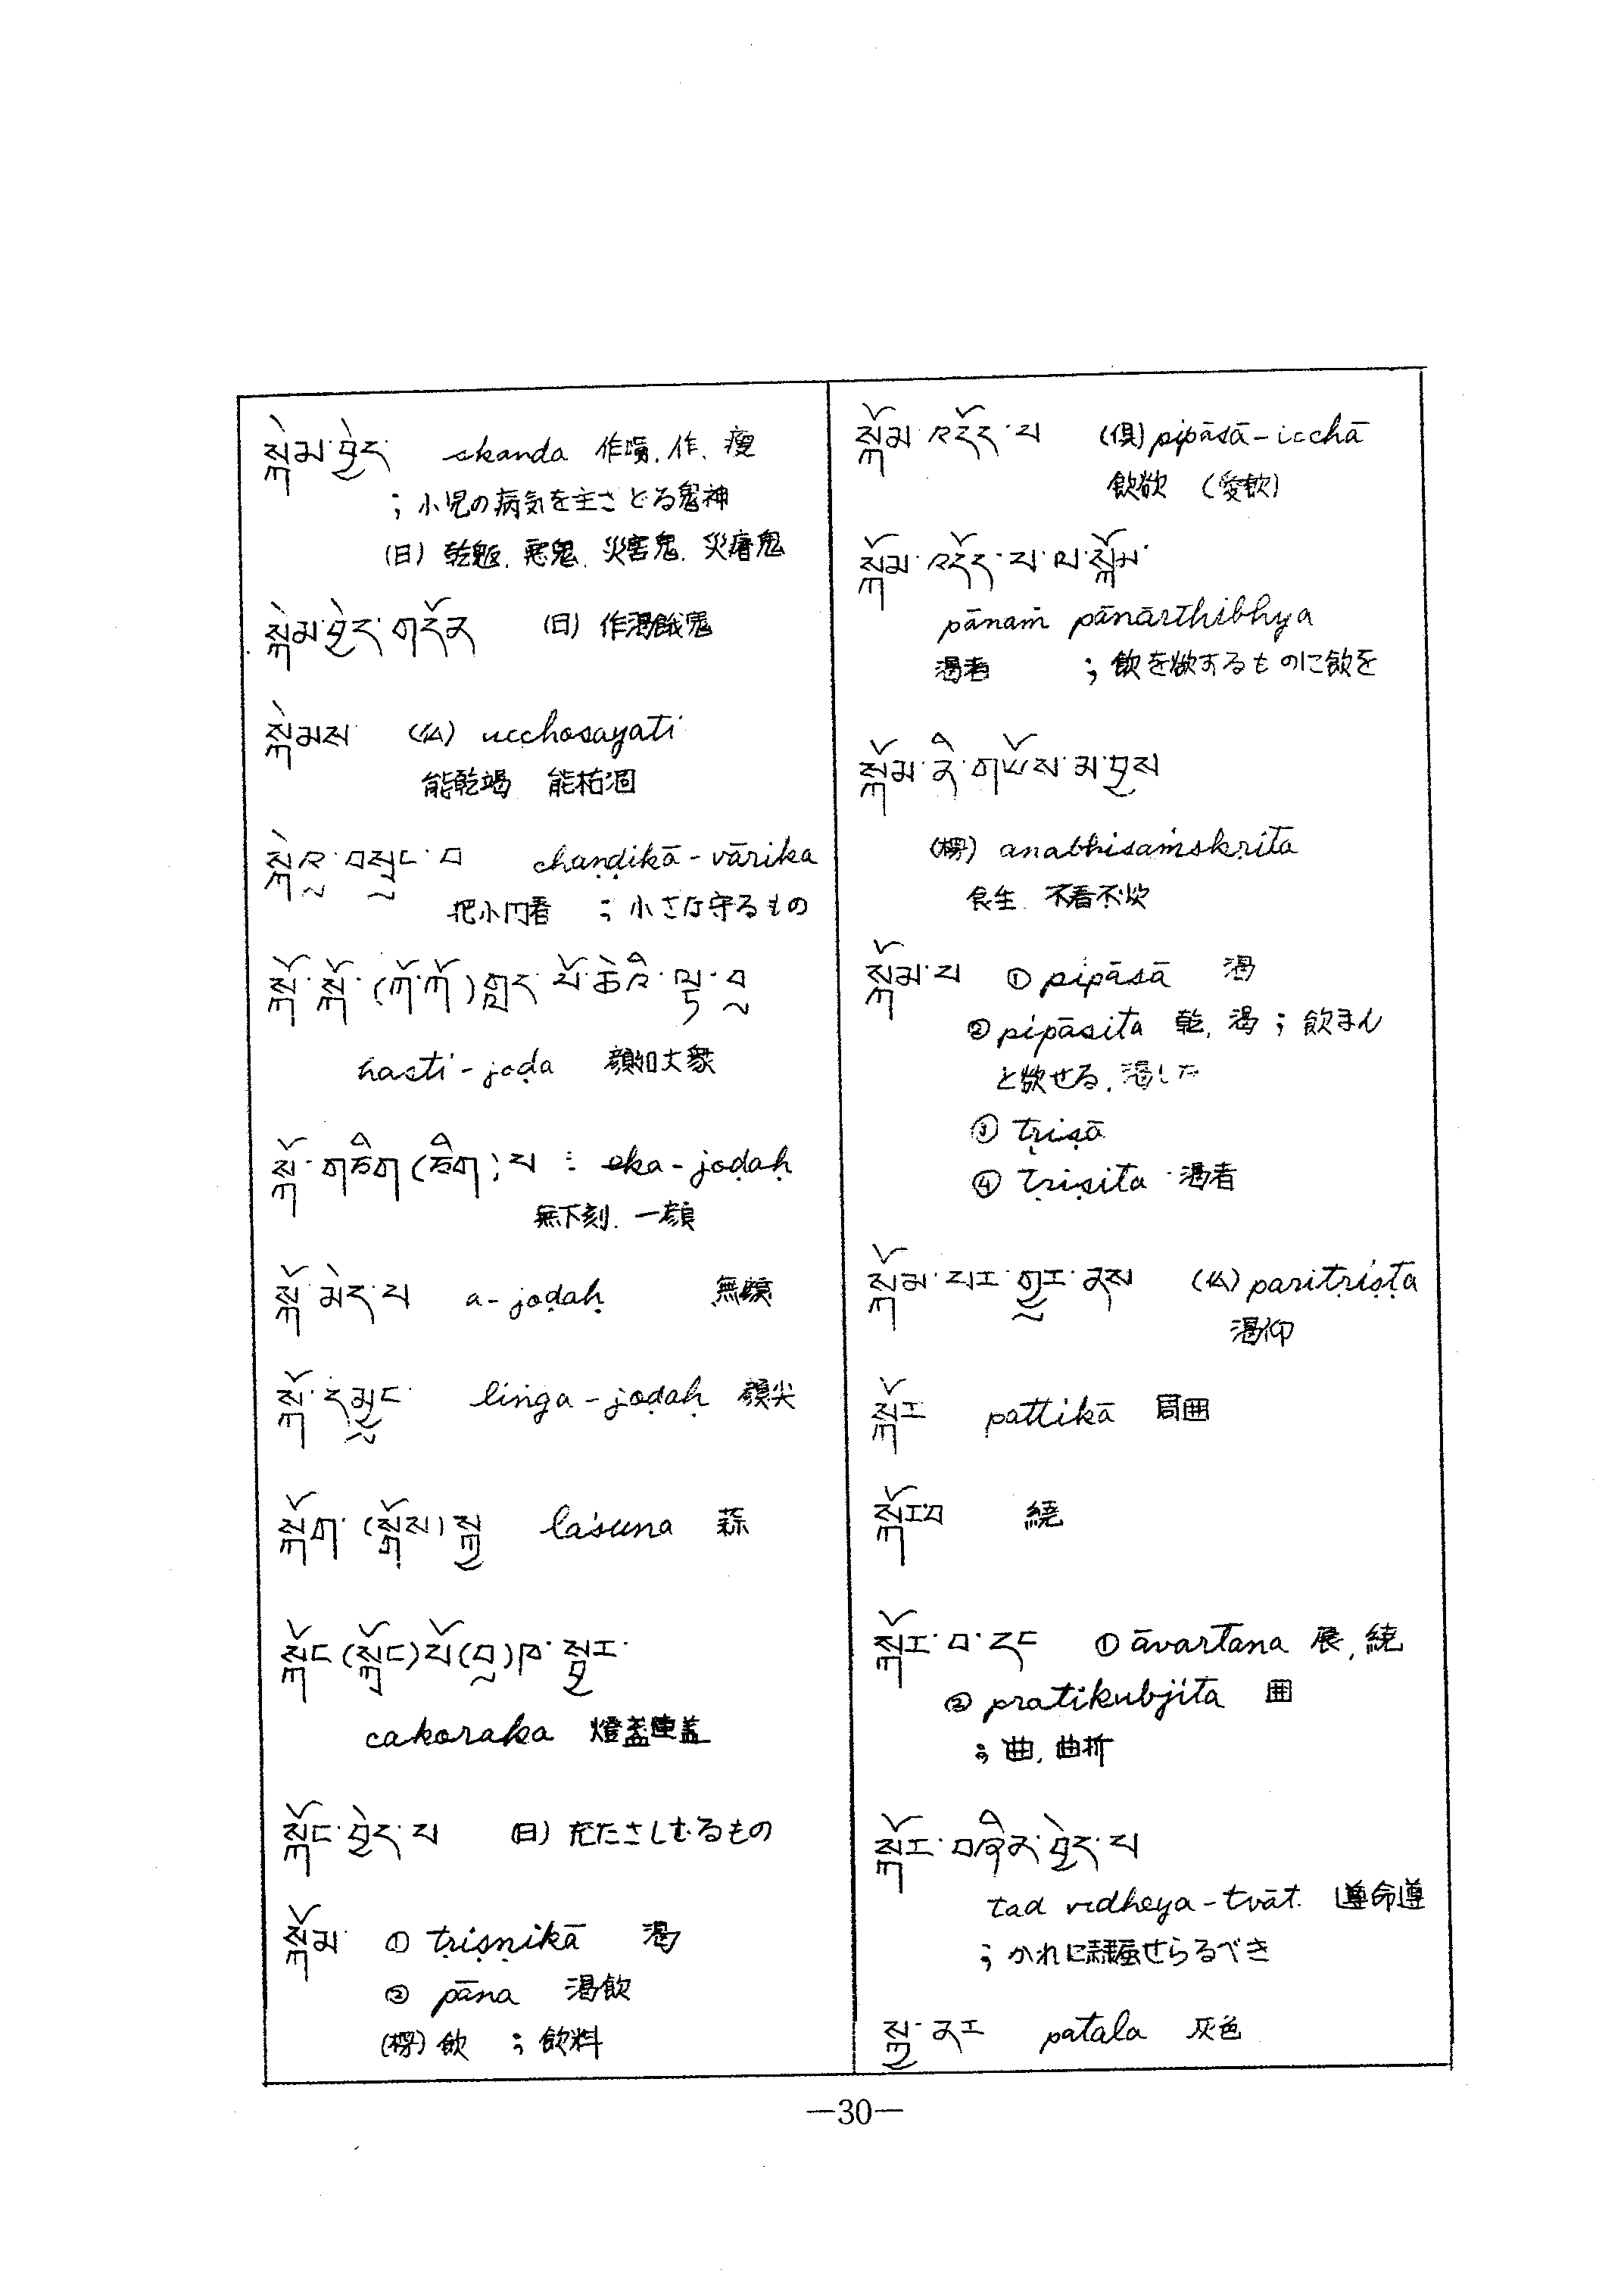 སྐེམ་བྱེད་ skanda 作嗔, 作, 瘦
; 小児の病気を主さどる鬼神
(日) 乾魃, 悪鬼, 災害鬼, 災瘡鬼
སྐེམ་བྱེད་གདོན (日) 作渇餓鬼
སྐེམས་ (仏) ucchosayati
能乾竭 能枯涸
སྐེའུ་བསྲུང་བ chaṇḍikā-vārika
把小門看 ; 小さな守るもの
སྐོ་སྐོ་(ཀོ་ཀོ)གླང་པོ་ཆེའི་ལྟ་བུ
hasti-joḍa 顔如大象
སྐོ་གཅིག(ཅིག)པ ; eka-joḍaḥ
無下刻, 一顏
སྐོ་མེད་པ a-joḍaḥ 無顎
སྐོ་དམྱུང་ liṅga-joḍaḥ 顎尖
སྐོག་(སྒོས)སྐྱ laśuna 蒜
སྐོང(སྒོང)པོ(བུ)ཁ་སྦྱར་
cakoraka 燈盞連蓋
སྐོང་བྱེད་པ (日) 充たさしむるもの
སྐོམ་ ① tṛiṣṇikā 渇
② pāna 渇飲
(楞) 飲 ; 飲料
སྐོམ་འདོད་པ (倶) pipāsā-icchā
飲欲 (愛飲)
སྐོམ་འདོད་པ་ལ་སྐོམ་
pānaṁ pānārthibhya
渇者 ; 飲を欲するものに飲を
སྐོམ་ནི་གཡོས་མ་བྱས
(楞) anabhisaṁskṛita
食生, 不看不炊
སྐོམ་པ ① pipāsā 渇
② pipāsita 乾, 渇 ; 飲まん
と欲せる, 渇した
③ tṛiṣā
④ tṛiṣita 渇者
སྐོམ་པར་གྱུར་ནས (仏) paritṛiṣṭa
渇仰
སྐོར pattikā 周囲
སྐོརབ 繞
སྐོར་བ་དང ① āvartana 展, 繞
② pratikubjita 囲
; 曲, 曲折
སྐོར་བཞིན་བྱེད་པ
tad vidheya-tvāt. 遵命遵
; かれに隷屬せらるべき
སྐྱ་ནར patala 灰色
—30—